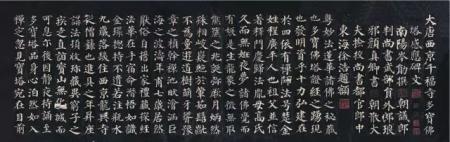 大唐西京千福寺多寶佛
塔感應碑文
南陽岑勛撰 朝議郎
判尚書武部員外郎琅
邪顏真卿書 朝散大
夫撿校尚書都官郎中
東海徐浩題額
粵妙法蓮華諸佛之秘藏
也多寶佛塔證經之踴現
也發明資乎十力弘建在
於四依有禪師法號楚金
姓程廣平人也祖父並信
著釋門慶歸法胤母高氏
久而無妊夜夢諸佛覺而
有娠是生龍象之徵無取
熊羆之兆誕彌月炎然
殊相岐嶷絕於葷茹髫齓
不為童遊道樹萌牙聳豫
章之楨幹禪池畎澮涵巨
海之波濤年甫七歲居然
厭俗自誓出家禮藏探經
法華在手宿命潛悟如識
金環總持不遺若注瓶水
九歲落髮住西京龍興寺
從僧籙也進具之年昇座
講法頓收珍藏異窮子之
疾走直詣寶山無化城而
可息尒後因靜夜持誦至
多寶塔品身心泊然如入
禪定忽見寶塔宛在目前